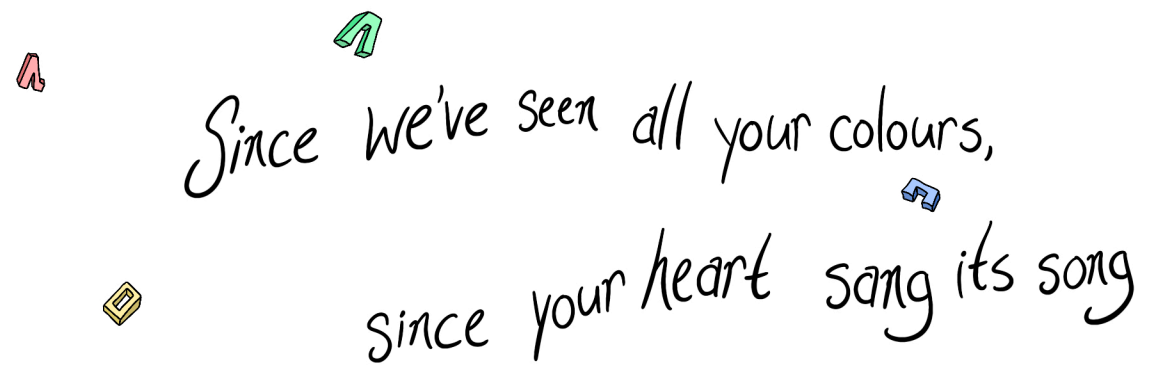 Since we've seen all your colours,
since your heart sang its song